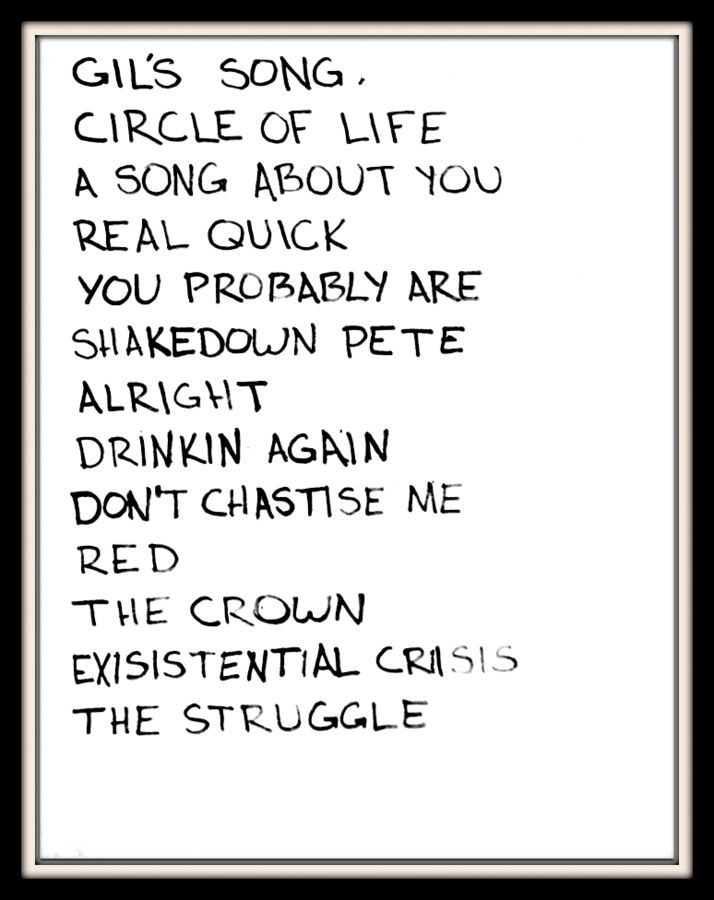 GIL'S SONG.
CIRCLE OF LIFE
A SONG ABOUT YOU
REAL QUICK
YOU PROBABLY ARE
SHAKEDOWN PETE
ALRIGHT
DRINKIN AGAIN
DON'T CHASTISE ME
RED
THE CROWN
EXISISTENTIAL CRISIS
THE STRUGGLE